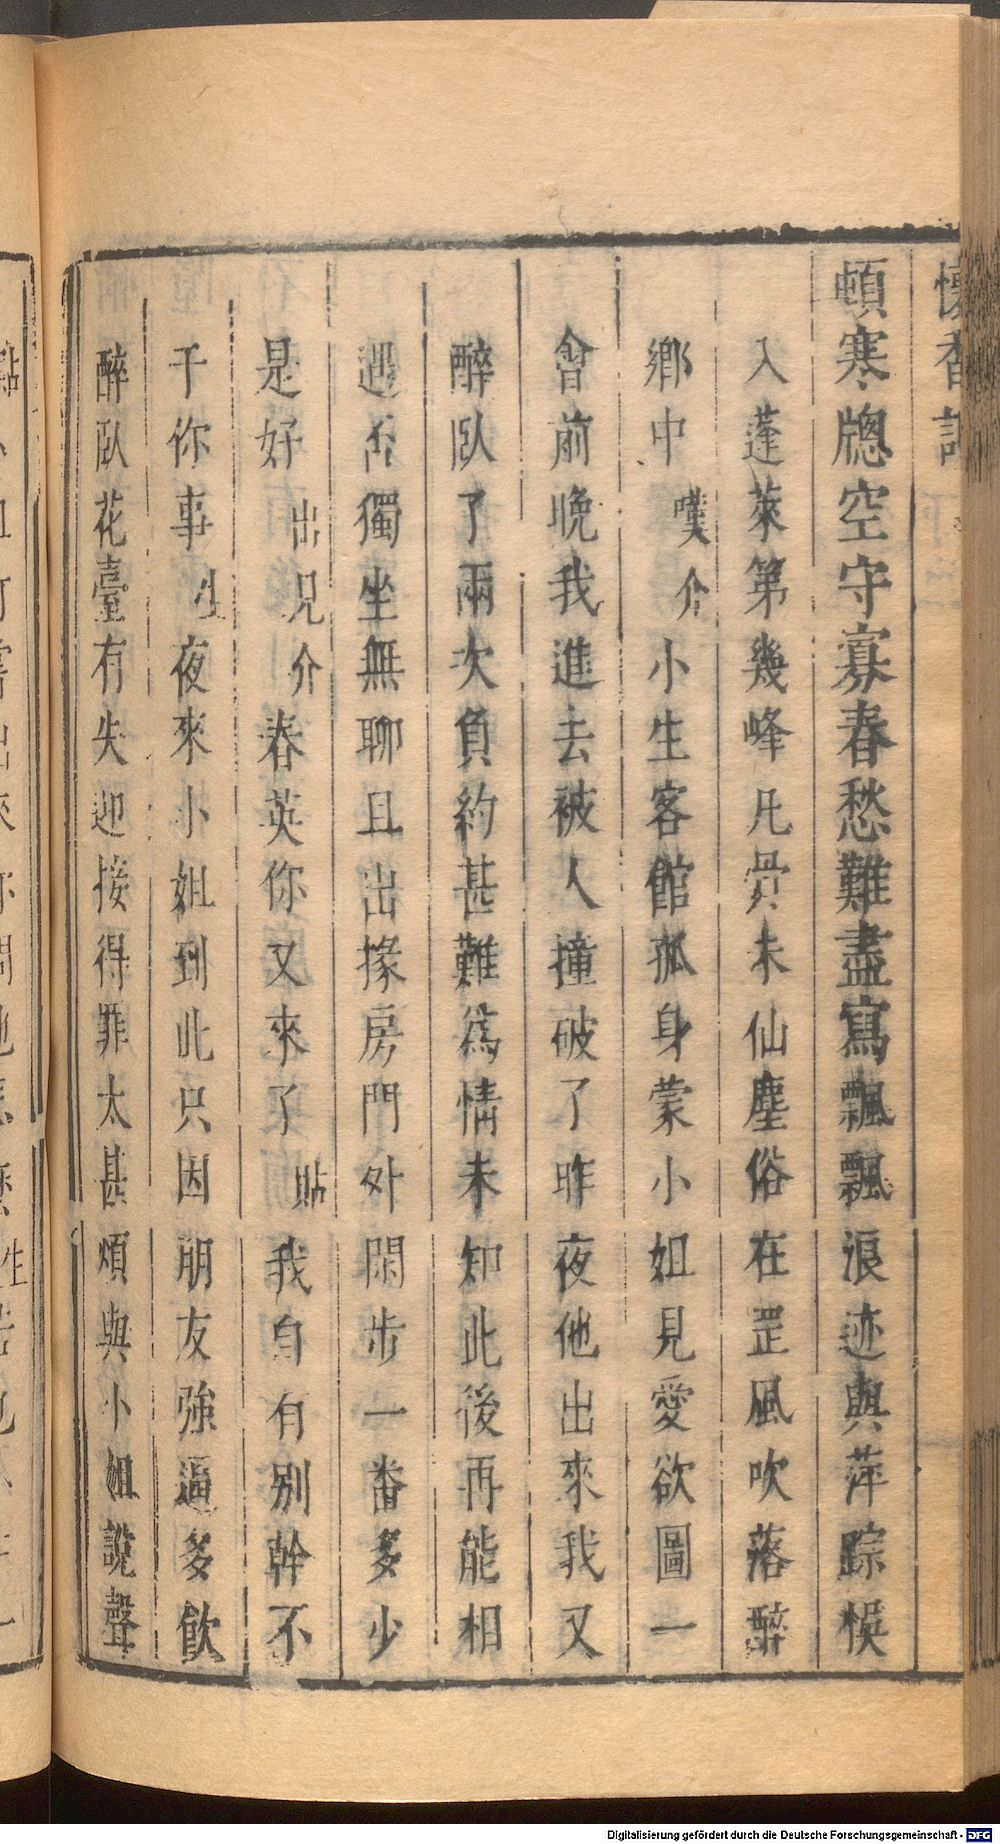 懷香記
頓寒牕空守寡春愁難盡寫飄飄浪迹與萍踪悞
入蓬萊第幾峰凡骨未仙塵俗在罡風吹落醉
鄉中嘆介小生客館孤身蒙小姐見愛欲圖一
會前晚我進去被人撞破了昨夜他出來我又
醉臥了兩次負約甚難爲情未知此後再能相
遇否獨坐無聊且出掾房門外閑步一畨多少
是好出見介春英你又來了貼我自有别幹不
干你事生夜來小姐到此只因朋友強逼多飲
醉臥花臺有失迎接得罪太甚煩與小姐說聲
Digitalisierung gefördert durch die Deutsche Forschungsgemeinschaft - DFG